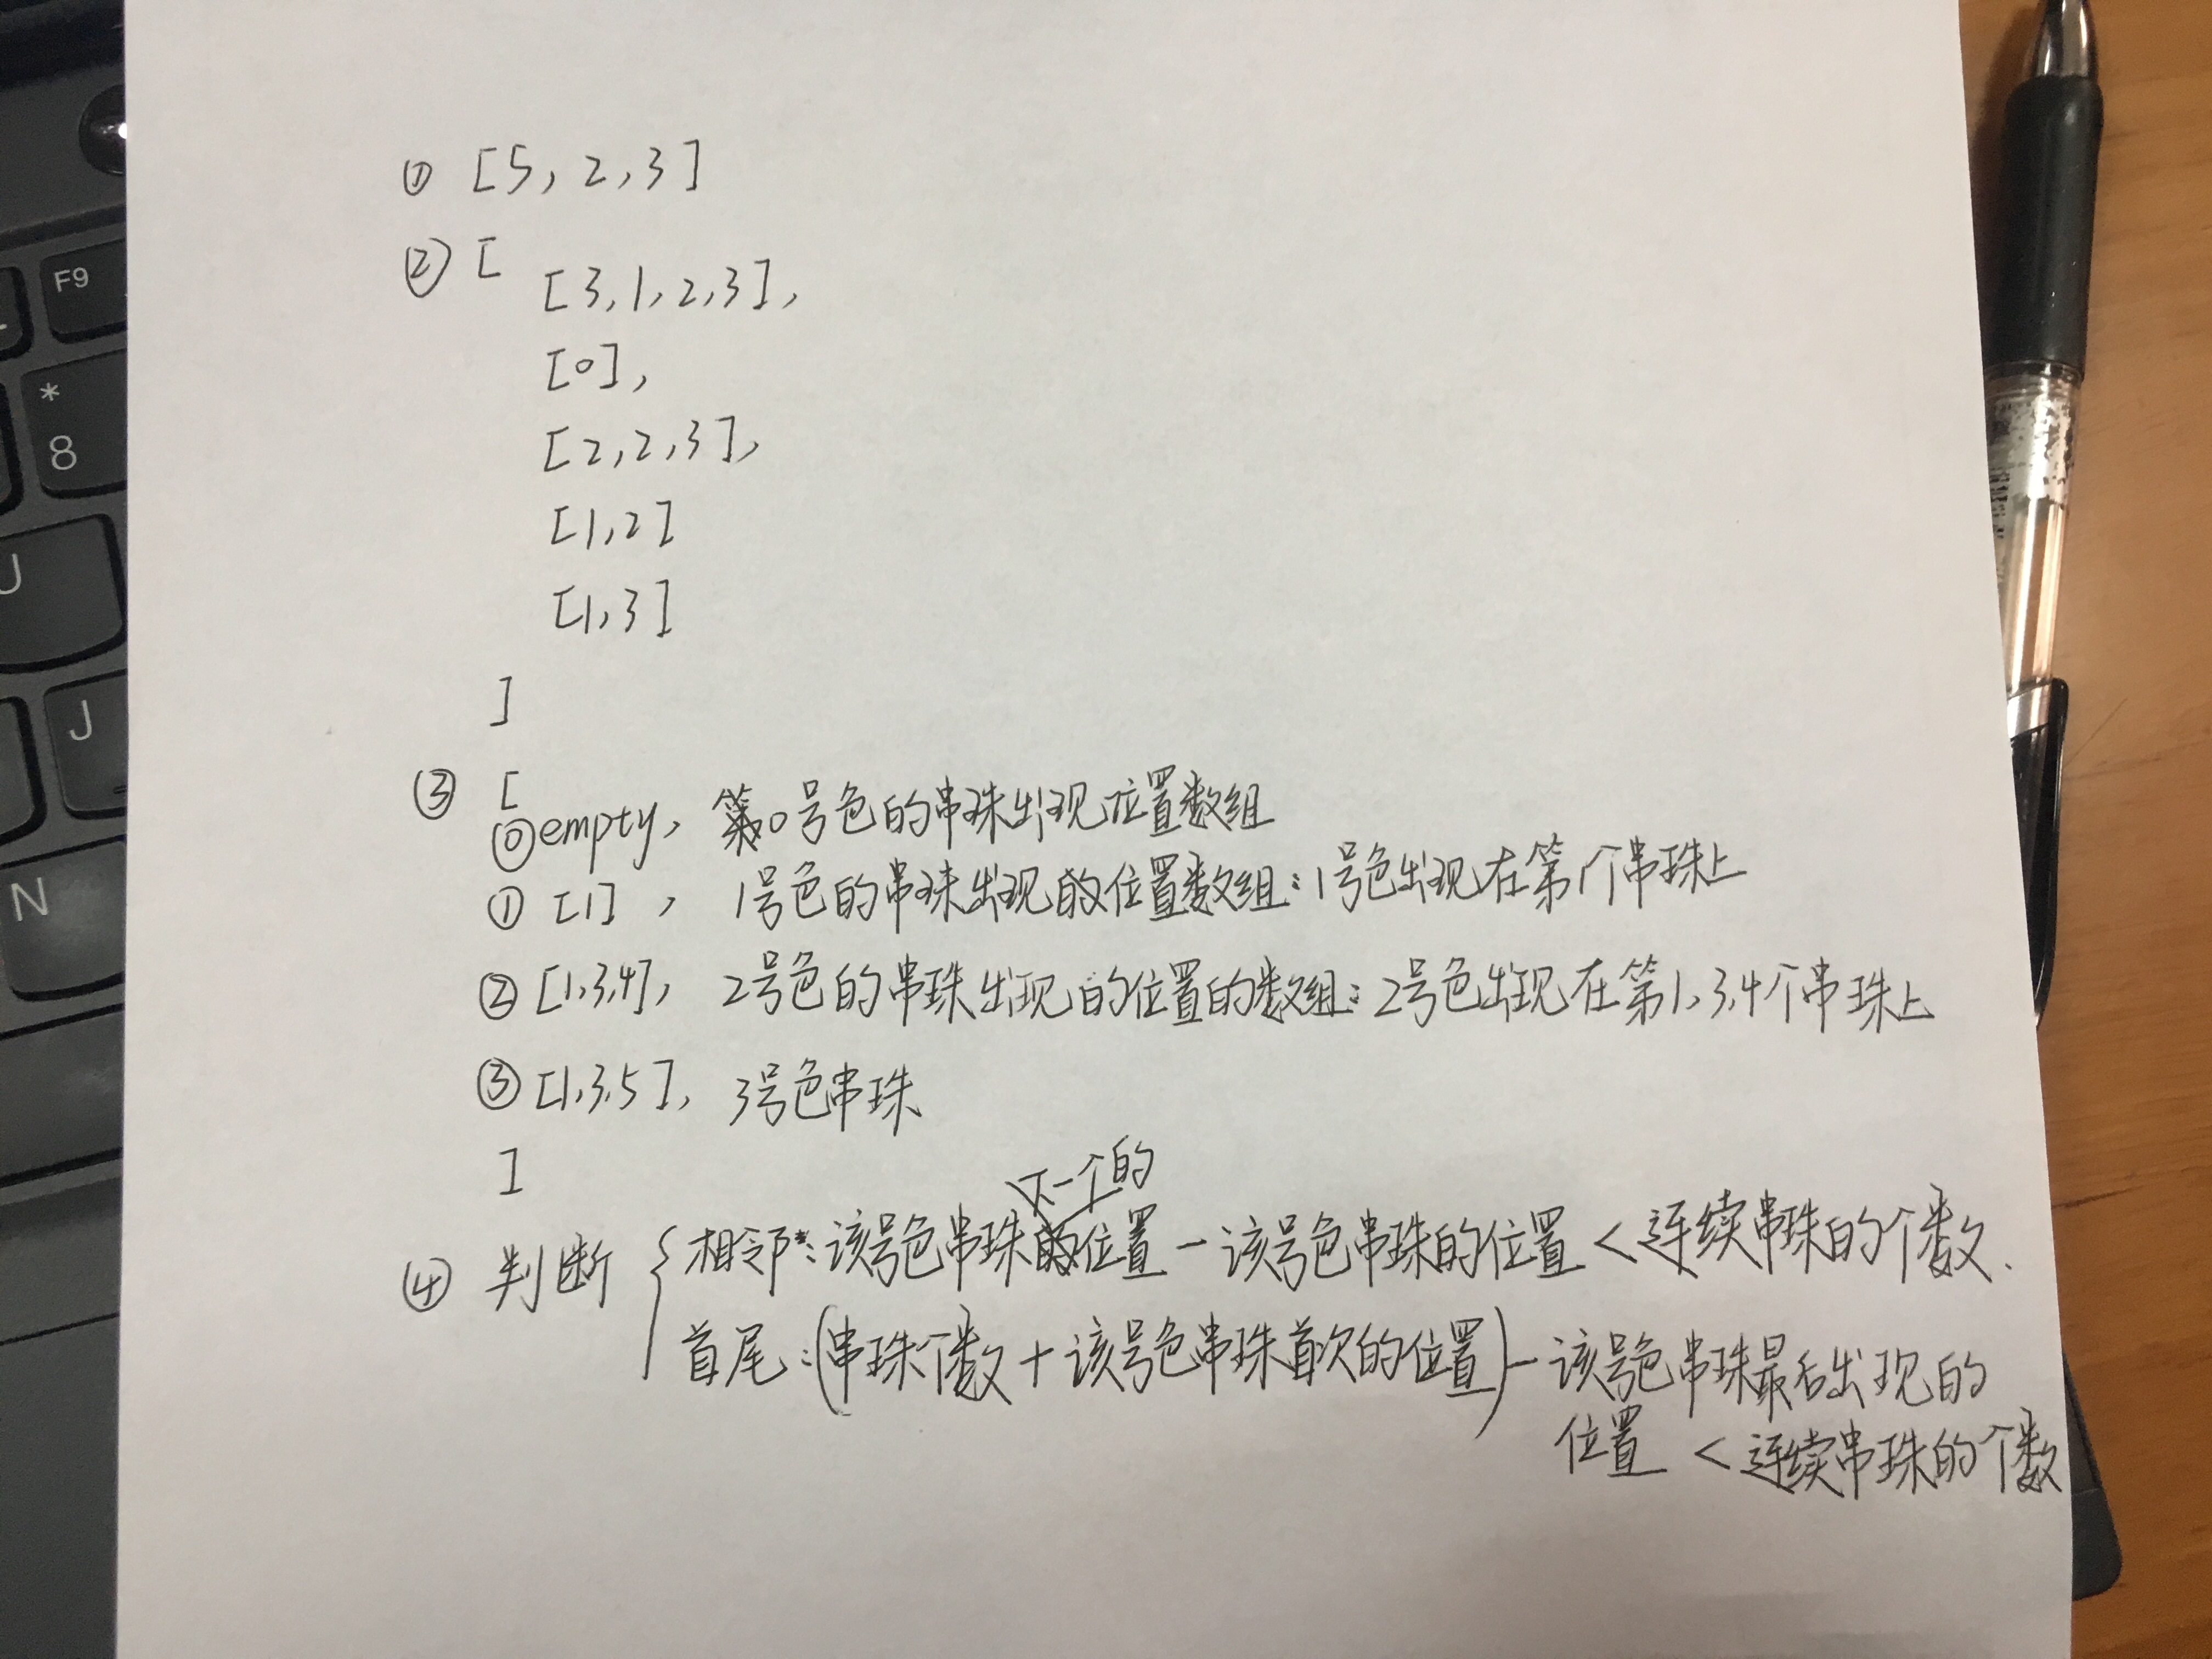 ① [5, 2, 3]
② [
[3, 1, 2, 3],
[0],
[2, 2, 3],
[1, 2]
[1, 3]
]
③ [
⓪ empty, 第0号色的串珠出现位置数组
① [1], 1号色的串珠出现的位置数组: 1号色出现在第1个串珠上
② [1,3,4], 2号色的串珠出现的位置的数组: 2号色出现在第1,3,4个串珠上
③ [1,3,5], 3号色串珠
]
下一个的
④ 判断 { 相邻: 该号色串珠位置 - 该号色串珠的位置 < 连续串珠的个数.
首尾: (串珠个数 + 该号色串珠首次的位置) - 该号色串珠最后出现的
位置 < 连续串珠的个数
F9
*
8
J
J
N